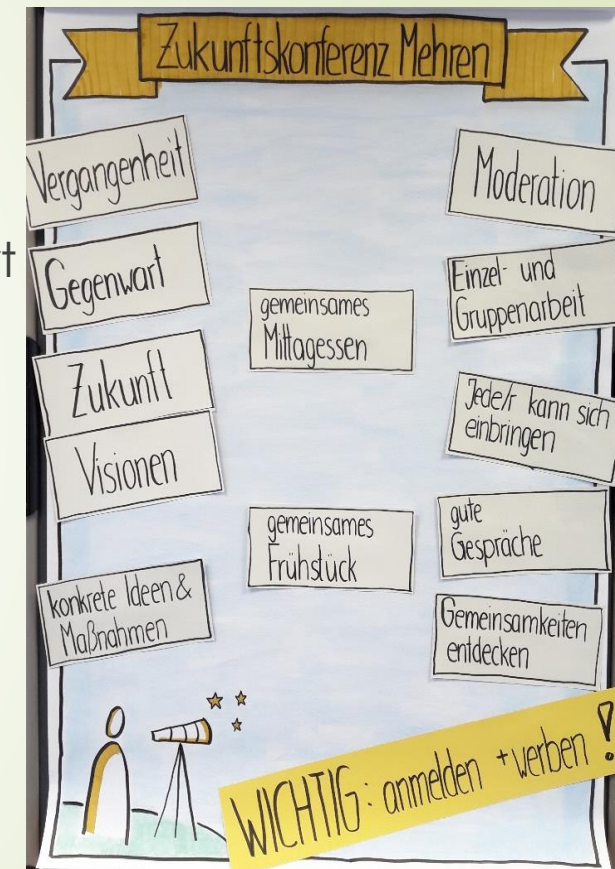 Zukunftskonferenz Mehren
Vergangenheit
Gegenwart
Zukunft
Visionen
konkrete Ideen &
Maßnahmen
gemeinsames
Mittagessen
gemeinsames
Frühstück
Moderation
Einzel- und
Gruppenarbeit
Jede/r kann sich
einbringen
gute
Gespräche
Gemeinsamkeiten
entdecken
WICHTIG: anmelden + werben!